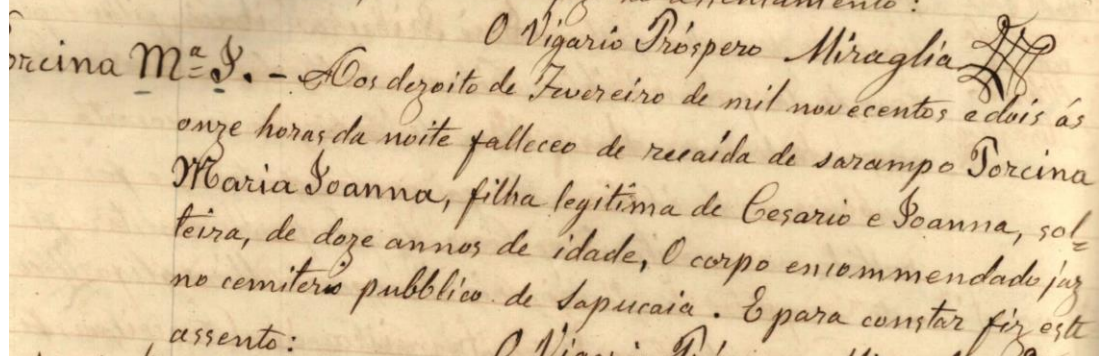 assentamento:
O Vigario Próspero Miraglia
Torcina Mª J. - Aos dezoito de Fevereiro de mil novecentos e dois ás
onze horas da noite falleceo de recaída de sarampo Torcina
Maria Joanna, filha legitima de Cesario e Joanna, sol=
teira, de doze annos de idade, O corpo encommendado jaz
no cemiterio pubblico de Sapucaia. E para constar fiz este
assento:
O Vigario